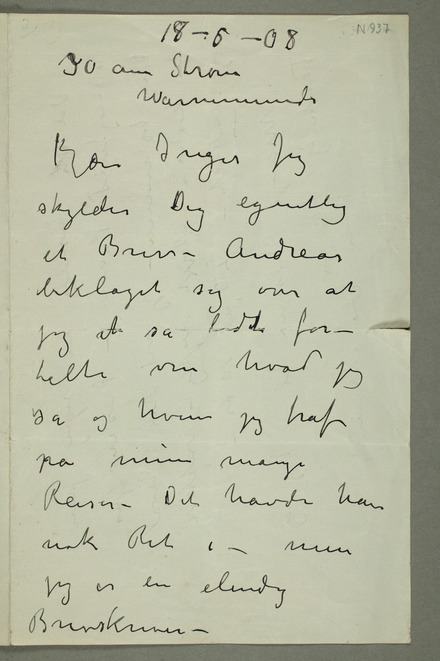 N 937
18–5–08
30 am Strom
Warnemünde
Kjære Inger Jeg
skylder Dig egentlig
et Brev – Andreas
beklaget seg over at
jeg så for–
telte om hvad jeg
så og hvem jeg traf
pa mine mange
Reiser – Det havde han
nok Ret i – men
jeg er en elendig
Brevskriver –